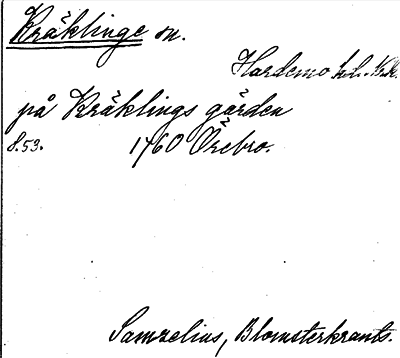 Kräklinge sn.
Hardemo hd. Nrk.
på Kräklings gården
S.53. 1760 Örebro.
Samzelius, Blomsterkrants.